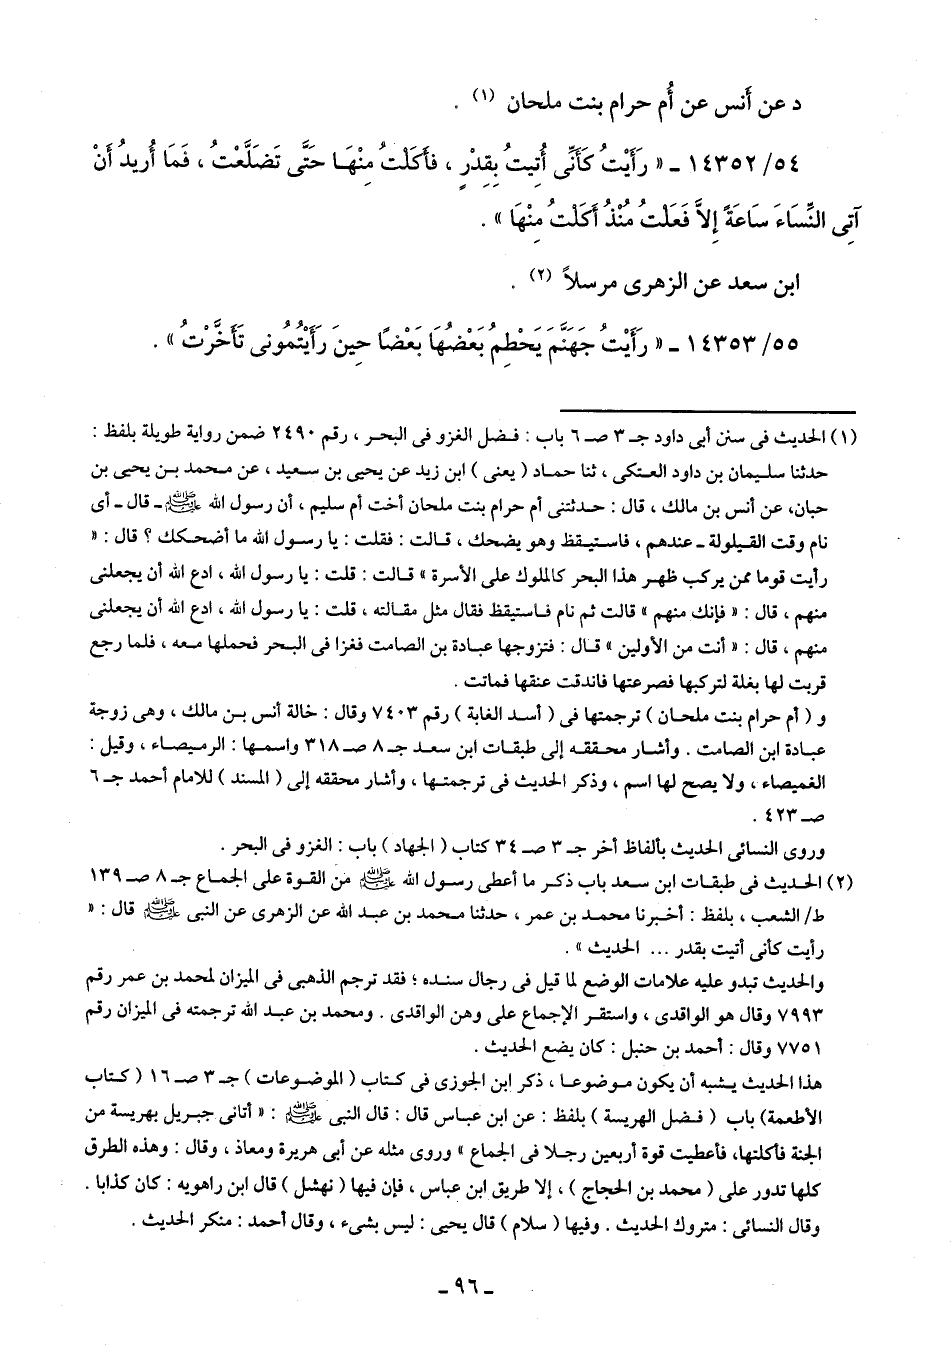 د عن أَنس عن أُم حرام بنت ملحان (١) .
٥٤/ ١٤٣٥٢ ـ « رَأَيْتُ كَأَنِّى أُتِيتُ بِقِدْرٍ ، فأَكَلْتُ مِنْهَا حَتَّى تَضَلَّعْتُ ، فَمَا أُرِيدُ أَنْ
آتِى النِّسَاءَ سَاعَةً إِلاَّ فَعَلْتُ مُنْذُ أَكَلْتُ مِنْهَا » .
ابن سعد عن الزهرى مرسلاً (٢) .
٥٥/ ١٤٣٥٣ ـ « رَأَيْتُ جَهَنَّمَ يَحْطِمُ بَعْضُهَا بَعْضًا حِينَ رَأَيْتُمُونِى تَأَخَّرْتُ » .
(١) الحديث فى سنن أبى داود جـ ٣ صـ ٦ باب : فضل الغزو فى البحر ، رقم ٢٤٩٠ ضمن رواية طويلة بلفظ :
حدثنا سليمان بن داود العتكى ، ثنا حماد ( يعنى ) ابن زيد عن يحيى بن سعيد ، عن محمد بن يحيى بن
حبان، عن أنس بن مالك ، قال : حدثتنى أم حرام بنت ملحان أخت أم سليم ، أن رسول الله ﷺ ـ قال ـ أى
نام وقت القيلولة ـ عندهم ، فاستيقظ وهو يضحك ، قالت : فقلت : يا رسول الله ما أضحكك ؟ قال : «
رأيت قوما ممن يركب ظهر هذا البحر كالملوك على الأسرة » قالت : قلت : يا رسول الله ، ادع الله أن يجعلنى
منهم ، قال : « فإنك منهم » قالت ثم نام فاستيقظ فقال مثل مقالته ، قلت : يا رسول الله ، ادع الله أن يجعلنى
منهم ، قال : « أنت من الأولين » قال : فتزوجها عبادة بن الصامت فغزا فى البحر فحملها معه ، فلما رجع
قربت لها بغلة لتركبها فصرعتها فاندقت عنقها فماتت .
و ( أم حرام بنت ملحان ) ترجمتها فى ( أسد الغابة ) رقم ٧٤٠٣ وقال : خالة أنس بن مالك ، وهى زوجة
عبادة ابن الصامت . وأشار محققه إلى طبقات ابن سعد جـ ٨ صـ ٣١٨ واسمها : الرميصاء ، وقيل :
الغميصاء ، ولا يصح لها اسم ، وذكر الحديث فى ترجمتها ، وأشار محققه إلى ( المسند ) للامام أحمد جـ ٦
صـ ٤٢٣ .
وروى النسائى الحديث بألفاظ أخر جـ ٣ صـ ٣٤ كتاب ( الجهاد ) باب : الغزو فى البحر .
(٢) الحديث فى طبقات ابن سعد باب ذكر ما أعطى رسول الله ﷺ من القوة على الجماع جـ ٨ صـ ١٣٩
ط/ الشعب ، بلفظ : أخبرنا محمد بن عمر ، حدثنا محمد بن عبد الله عن الزهرى عن النبى ﷺ قال : «
رأيت كأنى أتيت بقدر ... الحديث » .
والحديث تبدو عليه علامات الوضع لما قيل فى رجال سنده ؛ فقد ترجم الذهبى فى الميزان لمحمد بن عمر رقم
٧٩٩٣ وقال هو الواقدى ، واستقر الإجماع على وهن الواقدى . ومحمد بن عبد الله ترجمته فى الميزان رقم
٧٧٥١ وقال : أحمد بن حنبل : كان يضع الحديث .
هذا الحديث يشبه أن يكون موضوعا ، ذكر ابن الجوزى فى كتاب ( الموضوعات ) جـ ٣ صـ ١٦ ( كتاب
الأطعمة) باب ( فضل الهريسة ) بلفظ : عن ابن عباس قال : قال النبى ﷺ : « أتانى جبريل بهريسة من
الجنة فأكلتها، فأعطيت قوة أربعين رجلا فى الجماع » وروى مثله عن أبى هريرة ومعاذ ، وقال : وهذه الطرق
كلها تدور على ( محمد بن الحجاج ) ، إلا طريق ابن عباس ، فإن فيها ( نهشل ) قال ابن راهويه : كان كذابا .
وقال النسائى : متروك الحديث . وفيها ( سلام ) قال يحيى : ليس بشىء ، وقال أحمد : منكر الحديث .
ـ ٩٦ ـ